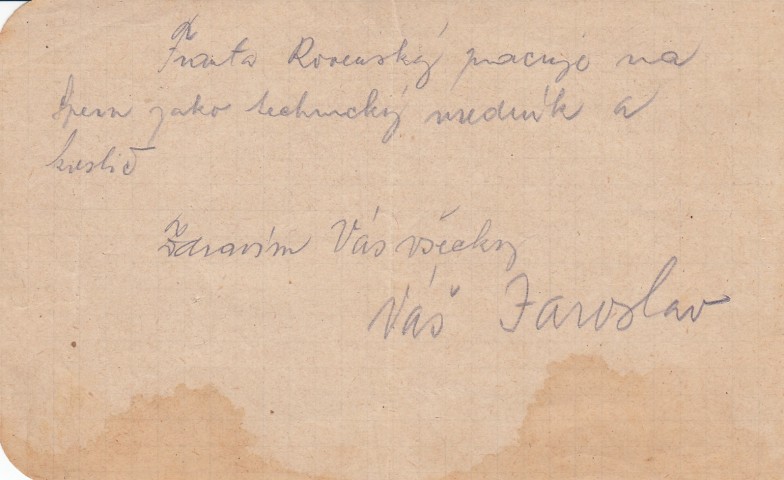 Franta Rovenský pracuje na
jako technický uredník a
kreslič
Zdravím Vás všecky
Váš Jaroslav